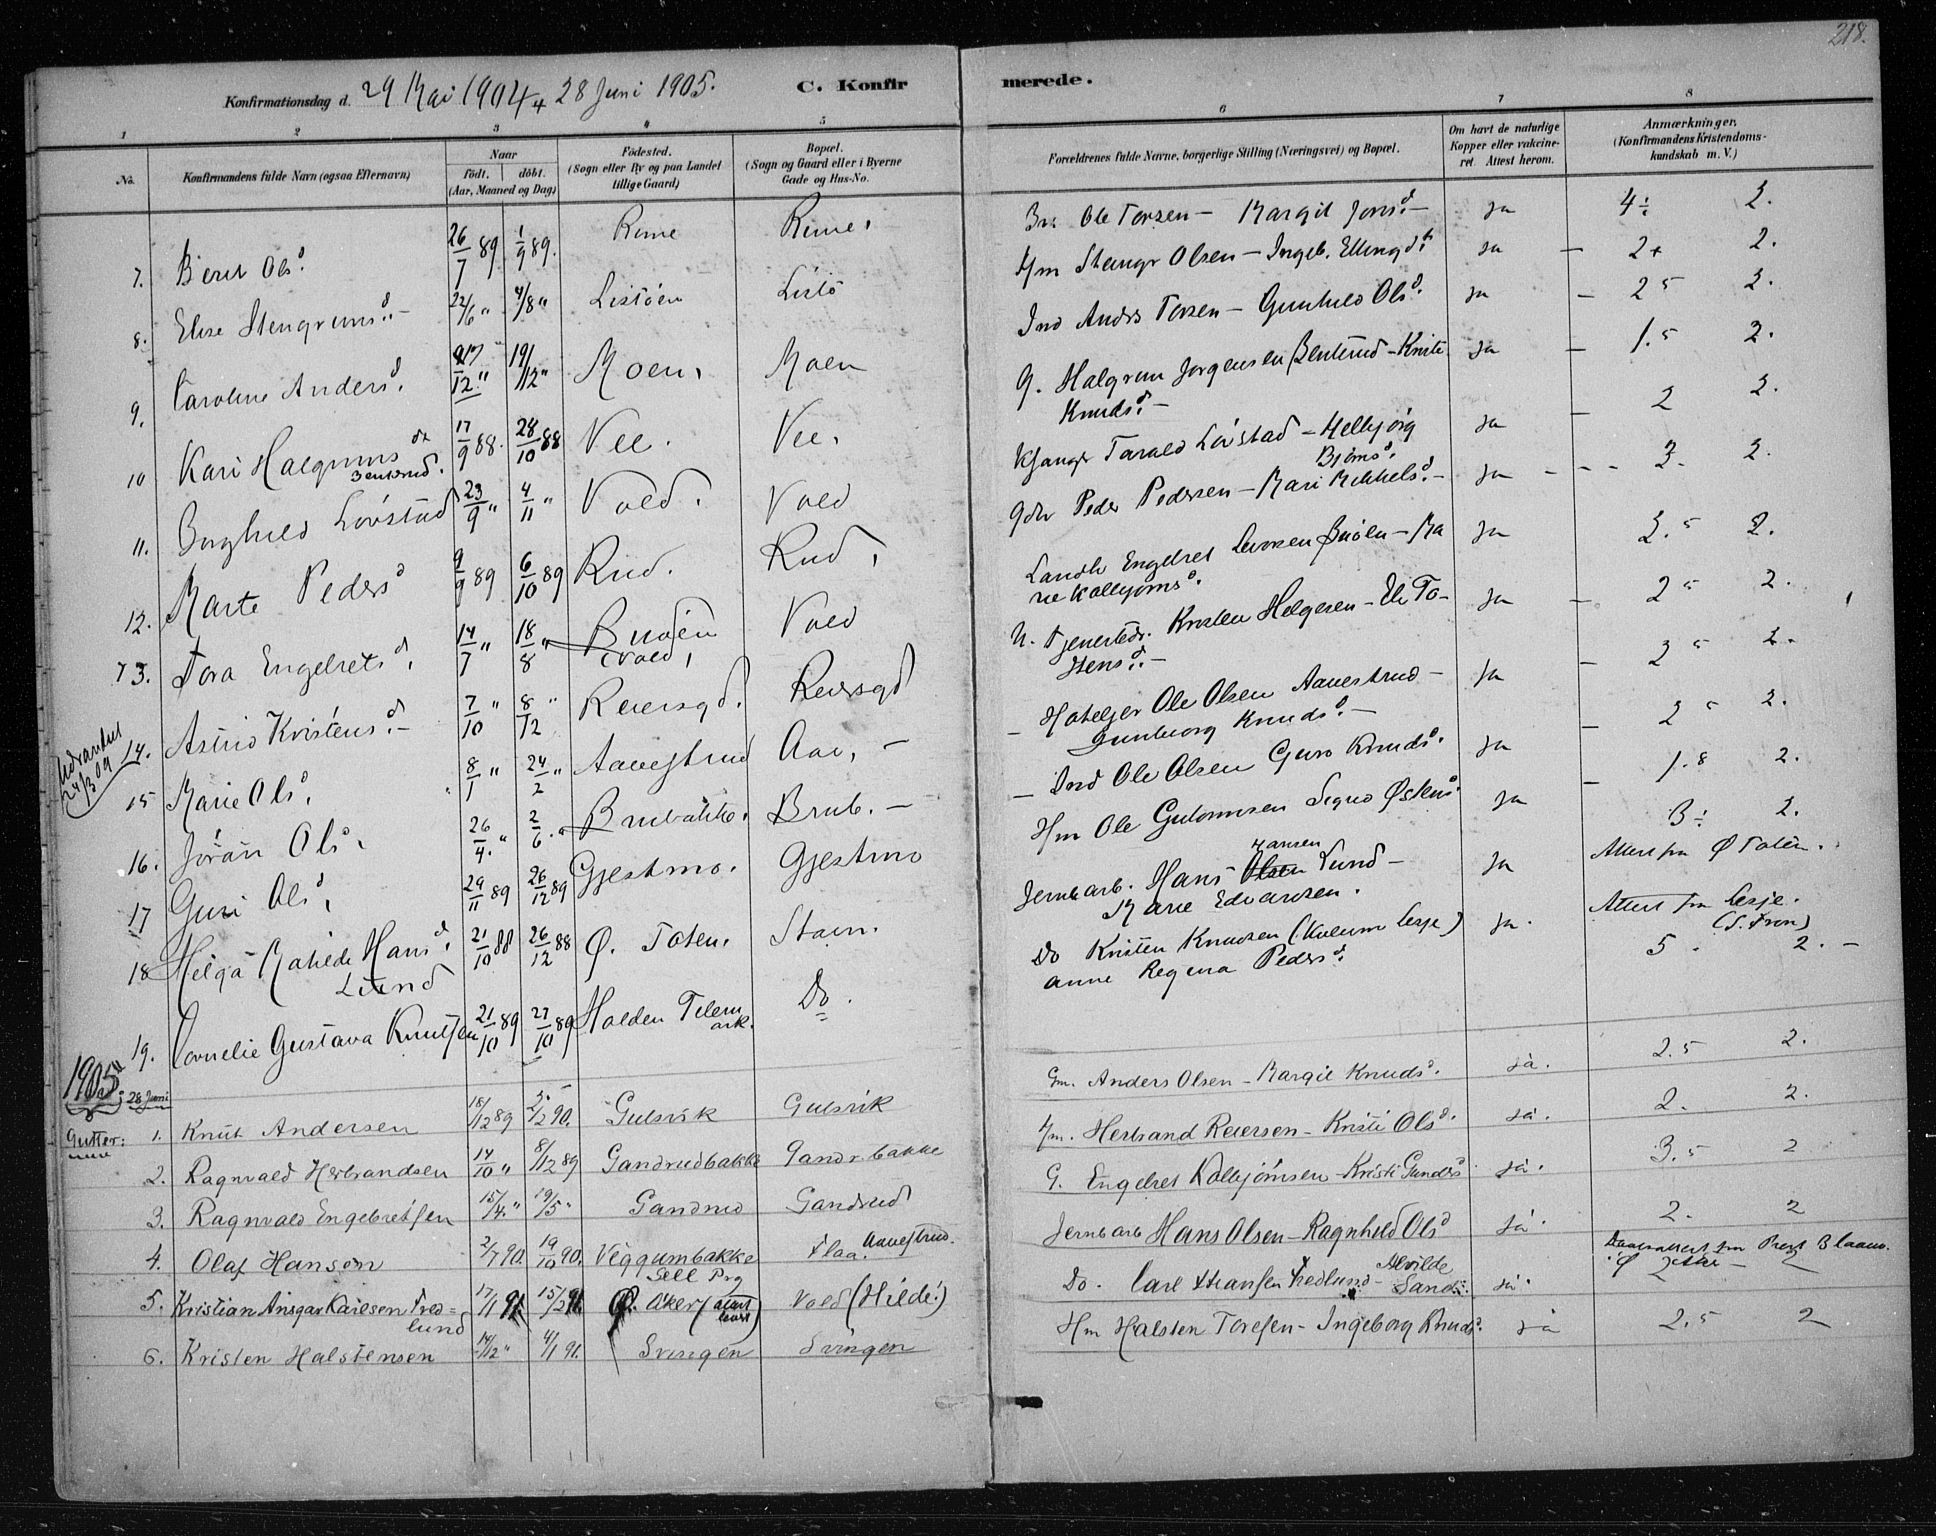 218.
Konfirmationsdag d. 29 Mai 1904 28 Juni 1905. C. Konfirmerede.
1 2 3 4 5 6 7 8
No. Konfirmandens fulde Navn (ogsaa Efternavn) Naar født. døbt. (Aar, Maaned og Dag) Fødested. (Sogn eller By og paa Landet tillige Gaard) Bopæl. (Sogn og Gaard eller i Byerne Gade og Hus-No. Forældrenes fulde Navne, borgerlige Stilling (Næringsvei) og Bopæl. Om havt de naturlige Kopper eller vakcineret Attest herom. Anmærkninger. (Konfirmandens Kristendomskundskab m. V.)
7. Berit Olsd. 26/7 89 1/9 89. Rime Rime. Ole Torsen – Margit Jonsd. – ja 2.
8. Elise Stengrimsd. – 22/6 " 4/8 " Listöen Listö Hm Stengr Olsen – Ingeb. Ellingsd. ja – 2+ 2.
9. Caroline Andersd. 12 " 19/12 " Moen. Moen Ind Anders Torsen – Gunhild Olsd. ja – 2 5 2.
10 Kari Halgrimsd Bentsrud. 17/9 88. 28/10 88 Vee. Vee. G. Halgrim Jorgensen Bentsrud – Kristi Knudsd. – ja – 1.5 2.
11. Borghild Lövstad 23/9 " 4/11 " Vold. Vold Tarald Lövstad – Helbjörg Björnsd. ja – 2 2.
12. Marte Pedersd 9/9 89 6/10 89 Rud. Rud. Gdb Peder Pedersen – Mari Mikkelsd. – ja - - - 3. 2.
13. Tora Engebretsd. 14/7 " 18/8 " Bruöen (Vold) Vold Landh Engebret Larsen Bruöen – Marie Kolbjörnsd. ja 2.5 2.
Udvandret 24/3 09
14. Astrid Kristensd. – 7/10 " 8/12 " Reiersgd. Reiersgd U. Tjenestedr. Kristen Helgesen – Eli Tostensd. – ja – 2 5 2.
15 Marie Olsd. 8/1 " 24/2 " Aavestrud Aav. – – Hoteleier Ole Olsen Aavestrud – Gunborg Knudsd. – ja – 2 5 2.
16. Jörán Olsd. 26/4. " 2/6. " Brubakke. Brub. – – Ind Ole Olsen Guro Knudsd. ja – 2 5 2.
17 Guri Olsd. 29/11 89 26/12 89 Gjestmo. Gjestmo Hm Ole Guttormsen Signe Østensd. ja – 1.8 2.
18 Helga Matilde Hansd. Lund 21/10 88 26/12 88 Ø. Toten. Stavn. Jernb arb. Hans Olsen Hansen Lund – Marie Edvardsen. ja 2. Attest fra Ø Toten.
19. Cornelie Gustava Knutsen 21/10 89 27/10 89 Holden Telemark. Do. Do Kristen Knudsen (Koleum Lesje) Anne Regina Pedersd. ja. Attest fra Lesje. (S. Fron) 5 2. –
1905
28 Juni
Gutter: 1. Knut Andersen 18/12 89 2/2 90. Gulsvik Gulsvik Gm. Anders Olsen – Margit Knudsd. ja. 2.5 2.
2. Ragnvald Herbrandsen 14/10 " 8/12 89 Gandrudbakke Gandr.bakke Hm. Herbrand Reiersen – Kristi Olsd. ja. 2. 2.
3. Ragnvald Engebretsen 15/4. " 19/5 " Gandrud Gandrud G. Engebret Kolbjörnsen – Kristi Gundersd ja. 3.5 2
4. Olaf Hansen 2/7 90. 19/10 90. Viggumbakke Sell Prg Flaa. Aavestrud. Jernb arb Hans Olsen – Ragnhild Olsd ja. 2. 2
5. Kristian Ansgar Karlsen Fredlund 17/1 91 15/2 91. Ø. Aker Vold (Hilde.) Do. Carl Hansen Fredlund – Alvilde Sand: ja. Daabsattest fra Prest Blaauw. 2 – 2
6. Kristen Halstensen 14/12 " 4/1 91. Svingen Svingen Hm Halsten Toresen – Ingeborg Knudsd. ja 2.5 2